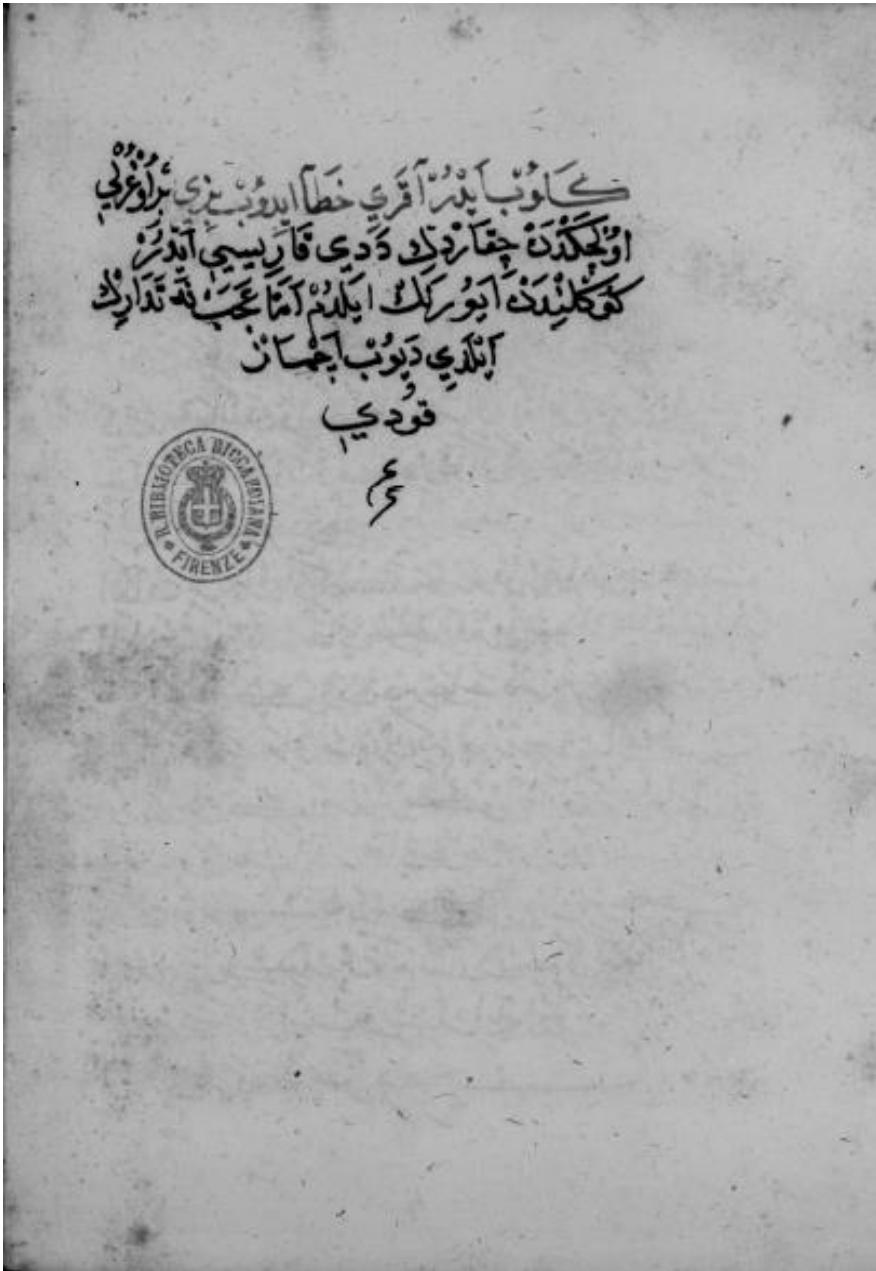 كَلوُبْ اَيْدُرْ آ قَرِي خَطَآ ايدوُبْ بِزِي بَراوُغُرلُي
اوُلجَكْدَنْ چِقَارْدِڭ دَدِي قَارِيسِي اَيْدُرْ
كوَڭلنِدَنْ اَيوُرَكْ ايلَدُمْ اَمَّا عَجَبْ نَه تَدَارِكْ
اَيْلَدِي دَيوُبْ اَچْمَازْ
قوُدِي
R. BIBLIOTECA RICCARDIANA
FIRENZE